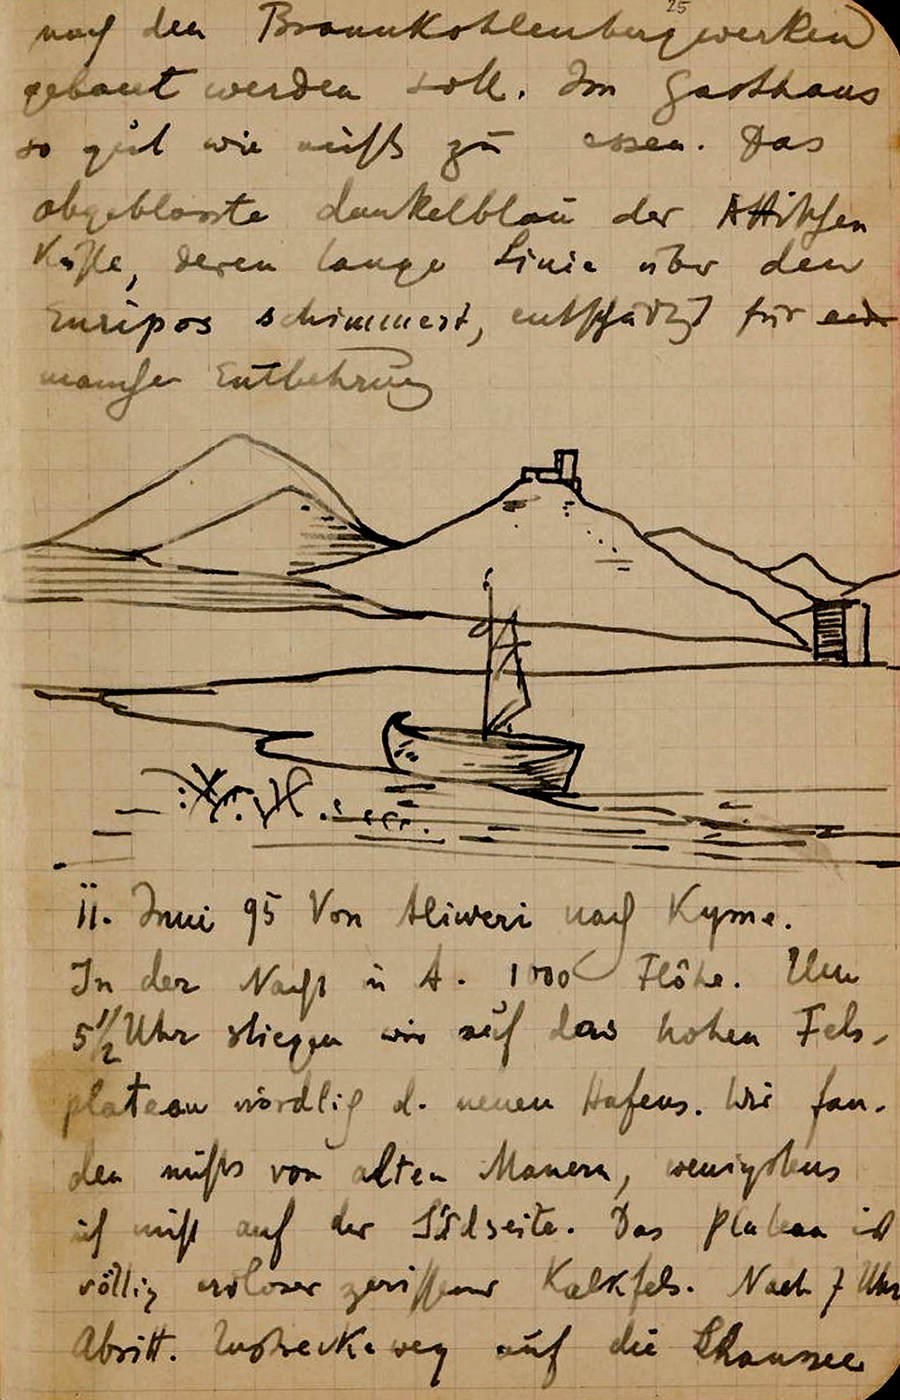 25
nach den Braunkohlenbergwerken
gebaut werden soll. Im Gasthaus
so gut wie nichts zu essen. Das
abgeblasste dunkelblau der Attischen
Küste, deren lange Linie über den
Euripos schimmert, entschädigt für
manche Entbehrung
11. Juni 95 Von Aliweri nach Kyme.
In der Nacht in A. 1000 Flöhe. Um
5 1/2 Uhr stiegen wir auf das hohen Fels-
plateau nördlich d. neuen Hafens. Wir fan-
den nichts von alten Mauern, wenigstens
ich nicht auf der Südseite. Das Plateau ist
völlig erdloser zerrissener Kalkfels. Nach 7 Uhr
Abritt. weg auf die Chaussee